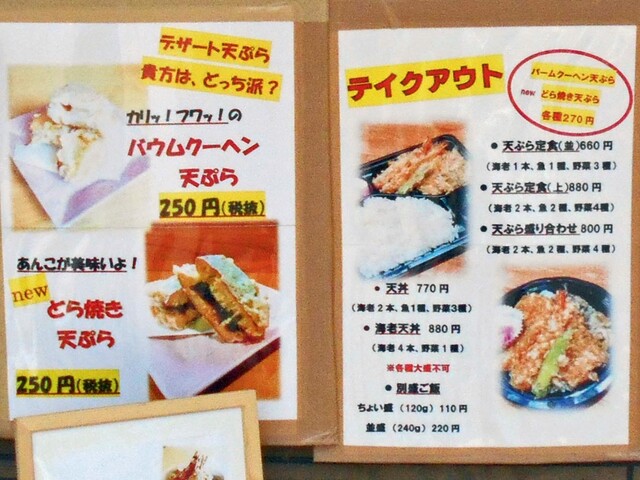 デザート天ぷら
貴方は、どっち派？
カリッ！フワッ！の
バウムクーヘン
天ぷら
250円(税抜)
あんこが美味いよ！
new
どら焼き
天ぷら
250円(税抜)
テイクアウト
バームクーヘン天ぷら
new どら焼き天ぷら
各種270円
●天ぷら定食(並)660円
(海老1本、魚1種、野菜3種)
●天ぷら定食(上)880円
(海老2本、魚2種、野菜4種)
●天ぷら盛り合わせ 800円
(海老2本、魚2種、野菜4種)
●天丼 770円
(海老2本、魚1種、野菜3種)
●海老天丼 880円
(海老4本、野菜1種)
※各種大盛不可
●別盛ご飯
ちょい盛 (120g) 110円
並盛 (240g) 220円